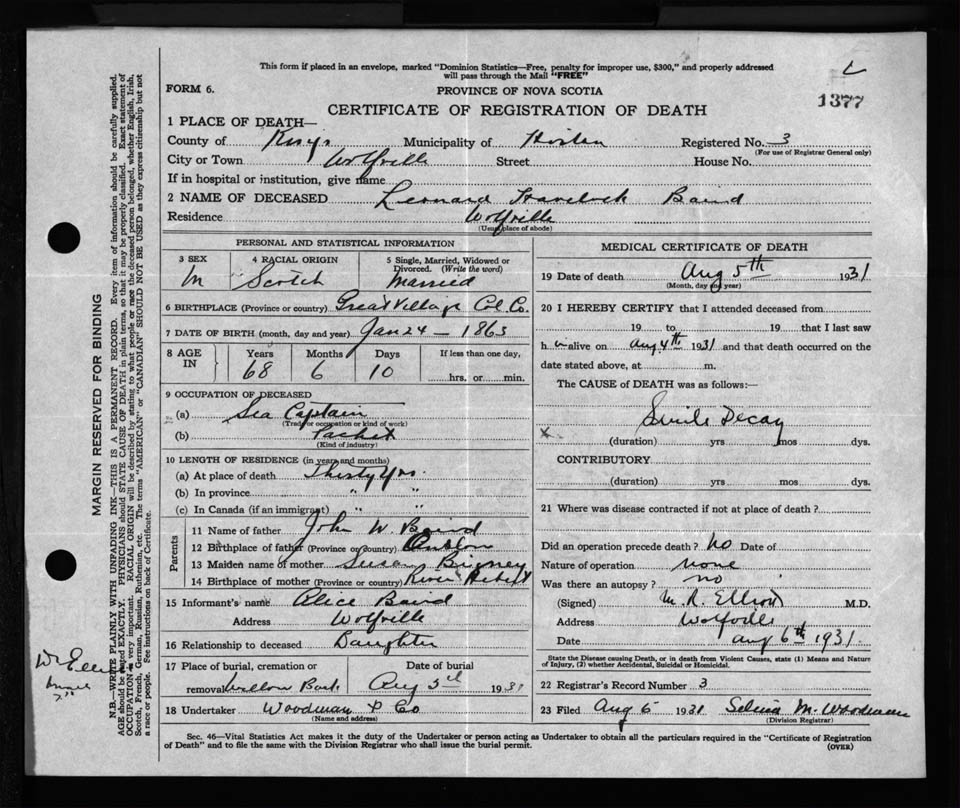 This form if placed in an envelope, marked "Dominion Statistics—Free, penalty for improper use, $300," and properly addressed
will pass through the Mail "FREE"
FORM 6.
PROVINCE OF NOVA SCOTIA
1377
CERTIFICATE OF REGISTRATION OF DEATH
1 PLACE OF DEATH—
County of Kings Municipality of Horton Registered No. 3
(For use of Registrar General only)
City or Town Wolfville Street House No.
If in hospital or institution, give name
2 NAME OF DECEASED Leonard Havelock Baird
Residence Wolfville
(Usual place of abode)
PERSONAL AND STATISTICAL INFORMATION
3 SEX 4 RACIAL ORIGIN 5 Single, Married, Widowed or
Divorced. (Write the word)
M Scotch Married
6 BIRTHPLACE (Province or country) Great Village Col. Co.
7 DATE OF BIRTH (month, day and year) Jan 24 — 1863
8 AGE IN Years Months Days If less than one day,
68 6 10 hrs. or min.
9 OCCUPATION OF DECEASED
(a) Sea Captain
(Trade or occupation or kind of work)
(b) Packet
(Kind of industry)
10 LENGTH OF RESIDENCE (in years and months)
(a) At place of death Thirty Yrs.
(b) In province " "
(c) In Canada (if an immigrant) " "
Parents
11 Name of father John W. Baird
12 Birthplace of father (Province or country) Onslow
13 Maiden name of mother Susan
14 Birthplace of mother (Province or country) River Hebert
15 Informant's name Alice Baird
Address Wolfville
16 Relationship to deceased Daughter
17 Place of burial, cremation or Date of burial
removal Willow Bank Aug 1931
18 Undertaker Woodman & Co
(Name and address)
MEDICAL CERTIFICATE OF DEATH
19 Date of death Aug 5th 1931
(Month, day and year)
20 I HEREBY CERTIFY that I attended deceased from
19 to 19 that I last saw
h m alive on Aug 4th 1931 and that death occurred on the
date stated above, at m.
The CAUSE of DEATH was as follows:—
Senile Decay
x
(duration) yrs mos dys.
CONTRIBUTORY
(duration) yrs mos dys.
21 Where was disease contracted if not at place of death?
Did an operation precede death? no Date of
Nature of operation none
Was there an autopsy? no
(Signed) M. R. Elliott M.D.
Address Wolfville
Date Aug 6th 1931.
State the Disease causing Death, or in death from Violent Causes, state (1) Means and Nature
of Injury, (2) whether Accidental, Suicidal or Homicidal.
22 Registrar's Record Number 3
23 Filed Aug 6 1931 Selina M. Woodman
(Division Registrar)
Sec. 46—Vital Statistics Act makes it the duty of the Undertaker or person acting as Undertaker to obtain all the particulars required in the "Certificate of Registration
of Death" and to file the same with the Division Registrar who shall issue the burial permit. (OVER)
MARGIN RESERVED FOR BINDING
N.B.—WRITE PLAINLY WITH UNFADING INK—THIS IS A PERMANENT RECORD. Every item of information should be carefully supplied.
AGE should be stated EXACTLY. PHYSICIANS should STATE CAUSE OF DEATH in plain terms, so that it may be properly classified. Exact statement of
OCCUPATION is very important. RACIAL ORIGIN will be described by stating to what people or race the deceased person belonged, whether English, Irish,
Scotch, French, German, Russian, Ruthenian, etc. The terms "AMERICAN" or "CANADIAN" SHOULD NOT BE USED as they express citizenship but not
a race or people. See instructions on back of Certificate.